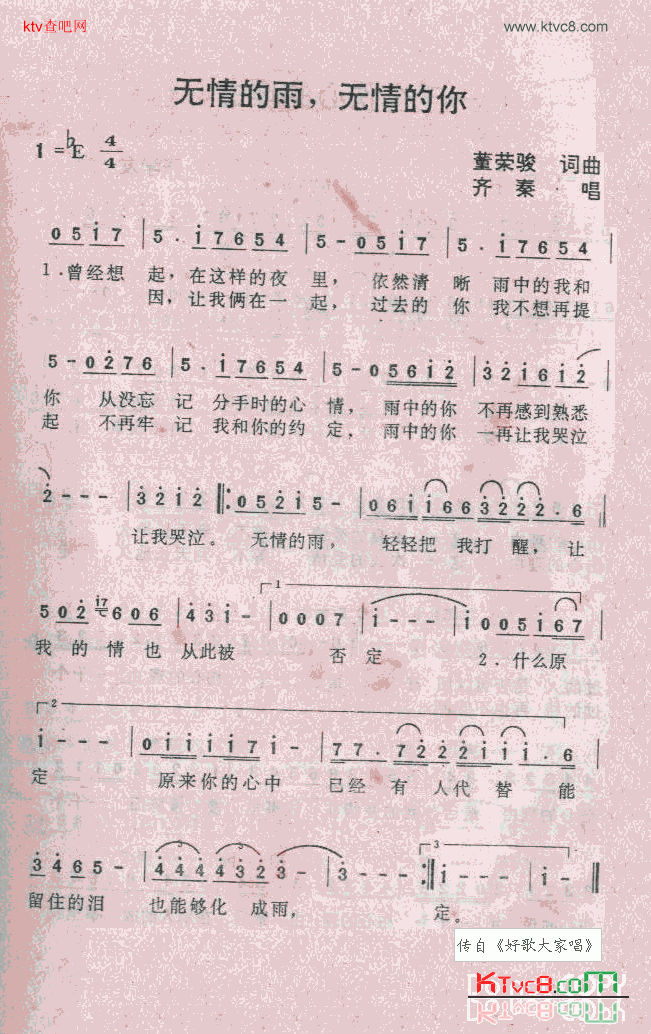 ktv查吧网 www.ktvc8.com
无情的雨，无情的你
1=♭E 4/4
董荣骏 词曲
齐秦 唱
0 5 i 7 | 5 · i 7 6 5 4 | 5 - 0 5 i 7 | 5 · i 7 6 5 4 |
1.曾经想 起，在这样的夜 里， 依然清 晰 雨中的我和
因，让我俩在一 起，过去的 你 我不想再提
5 - 0 2 7 6 | 5 · i 7 6 5 4 | 5 - 0 5 6 i 2 | 3 2 i 6 i 2 |
你 从没忘 记 分手时的心 情， 雨中的你 不再感到熟悉
起 不再牢 记 我和你的约 定，雨中的你 一再让我哭泣
2 - - - | 3 2 i 2 ‖: 0 5 2 i 5 - | 0 6 i i 6 6 3 2 2 2 · 6 ‖
让我哭泣。 无情的雨， 轻轻把 我打 醒，让
1
5 0 2 i7 6 0 6 | 4 3 i - | 0 0 0 7 | i - - - | i 0 0 5 i 6 7 |
我 的 情 也 从此被 否 定 2.什么原
2
i - - - | 0 i i i i 7 i - | 7 7 · 7 2 2 2 i i i · 6 |
定 原来你的心中 已经 有 人代 替 能
3
3 4 6 5 - | 4 4 4 4 3 2 3 - | 3 - - - :‖ i - - - | i - ‖
留住的泪 也能够化 成雨， 定。
传自《好歌大家唱》
KTvc8.com